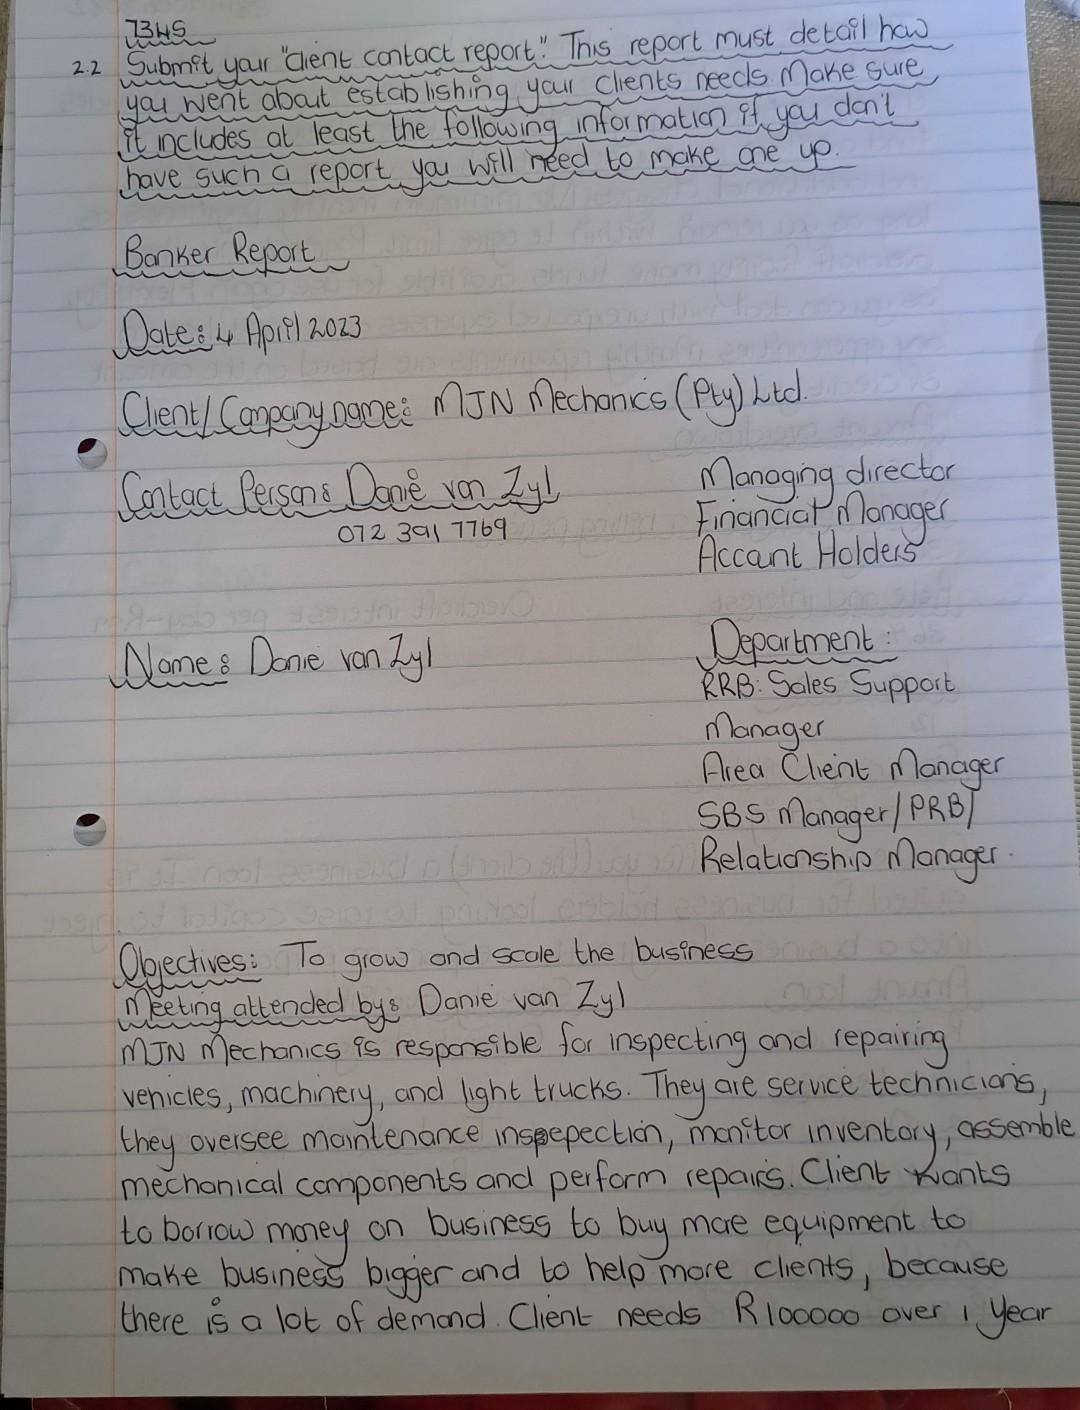 7345
2.2 Submit your "client contact report." This report must detail how
you went about establishing your clients needs. Make sure
it includes at least the following information if you don't
have such a report you will need to make one up.
Banker Report
Date: 4 April 2023
Client/Company name: MJN Mechanics (Pty) Ltd.
Contact Person: Danie van Zyl Managing director
072 391 7769 Financial Manager
Account Holders
Name: Danie van Zyl Department:
RRB: Sales Support
Manager
Area Client Manager
SBS Manager/PRB/
Relationship Manager.
Objectives: To grow and scale the business
Meeting attended by: Danie van Zyl
MJN Mechanics is responsible for inspecting and repairing
vehicles, machinery, and light trucks. They are service technicians,
they oversee maintenance inspepection, monitor inventory, assemble
mechanical components and perform repairs. Client wants
to borrow money on business to buy more equipment to
make business bigger and to help more clients, because
there is a lot of demand. Client needs R100000 over 1 year